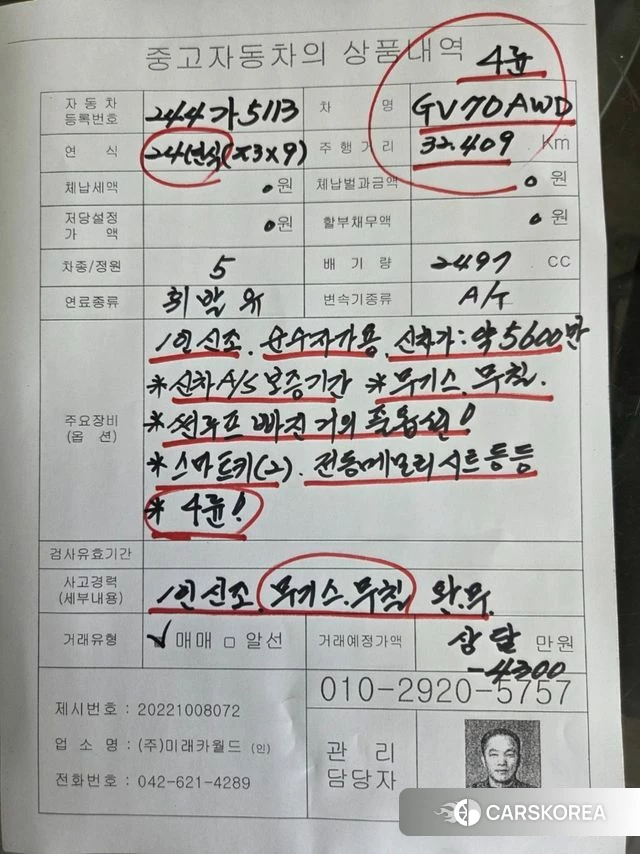 중고자동차의 상품내역
4륜
자동차
등록번호
244가5113
차 명
GV70AWD
연 식
24년식(23×9)
주행거리
32.409 Km
체납세액
0원
체납벌과금액
0 원
저당설정
가 액
0원
할부채무액
0 원
차종/정원
5
배 기 량
2497 CC
연료종류
휘발유
변속기종류
A/T
주요장비
(옵 션)
1인신조. 순수자가용. 신차가:약5600만
*신차A/S보증기간 *무기스.무칠.
*썬루프 빠진거의 풀옵션!
*스마트키(2). 전동메모리시트등등
* 4륜!
검사유효기간
사고경력
(세부내용)
1인신조. 무기스.무칠 완.무
거래유형
✓매매 □ 알선
거래예정가액
상담 만원
-4300
010-2920-5757
제시번호 : 20221008072
업 소 명 : (주)미래카월드 (인)
전화번호 : 042-621-4289
관 리
담당자
CARSKOREA